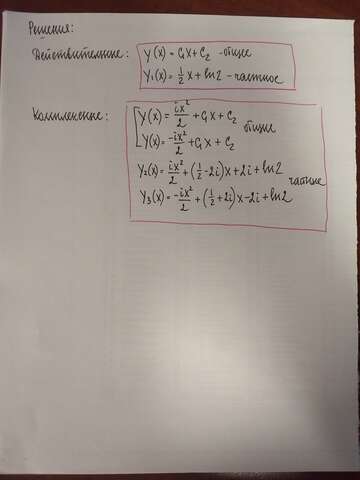 Решения:
Действительные: y(x) = C₁x + C₂ - общее
y₁(x) = 1/2 x + ln2 - частное
Комплексные: [y(x) = ix²/2 + C₁x + C₂
y(x) = -ix²/2 + C₁x + C₂ общие
y₂(x) = ix²/2 + (1/2 - 2i)x + 2i + ln2
y₃(x) = -ix²/2 + (1/2 + 2i)x - 2i + ln2 частные